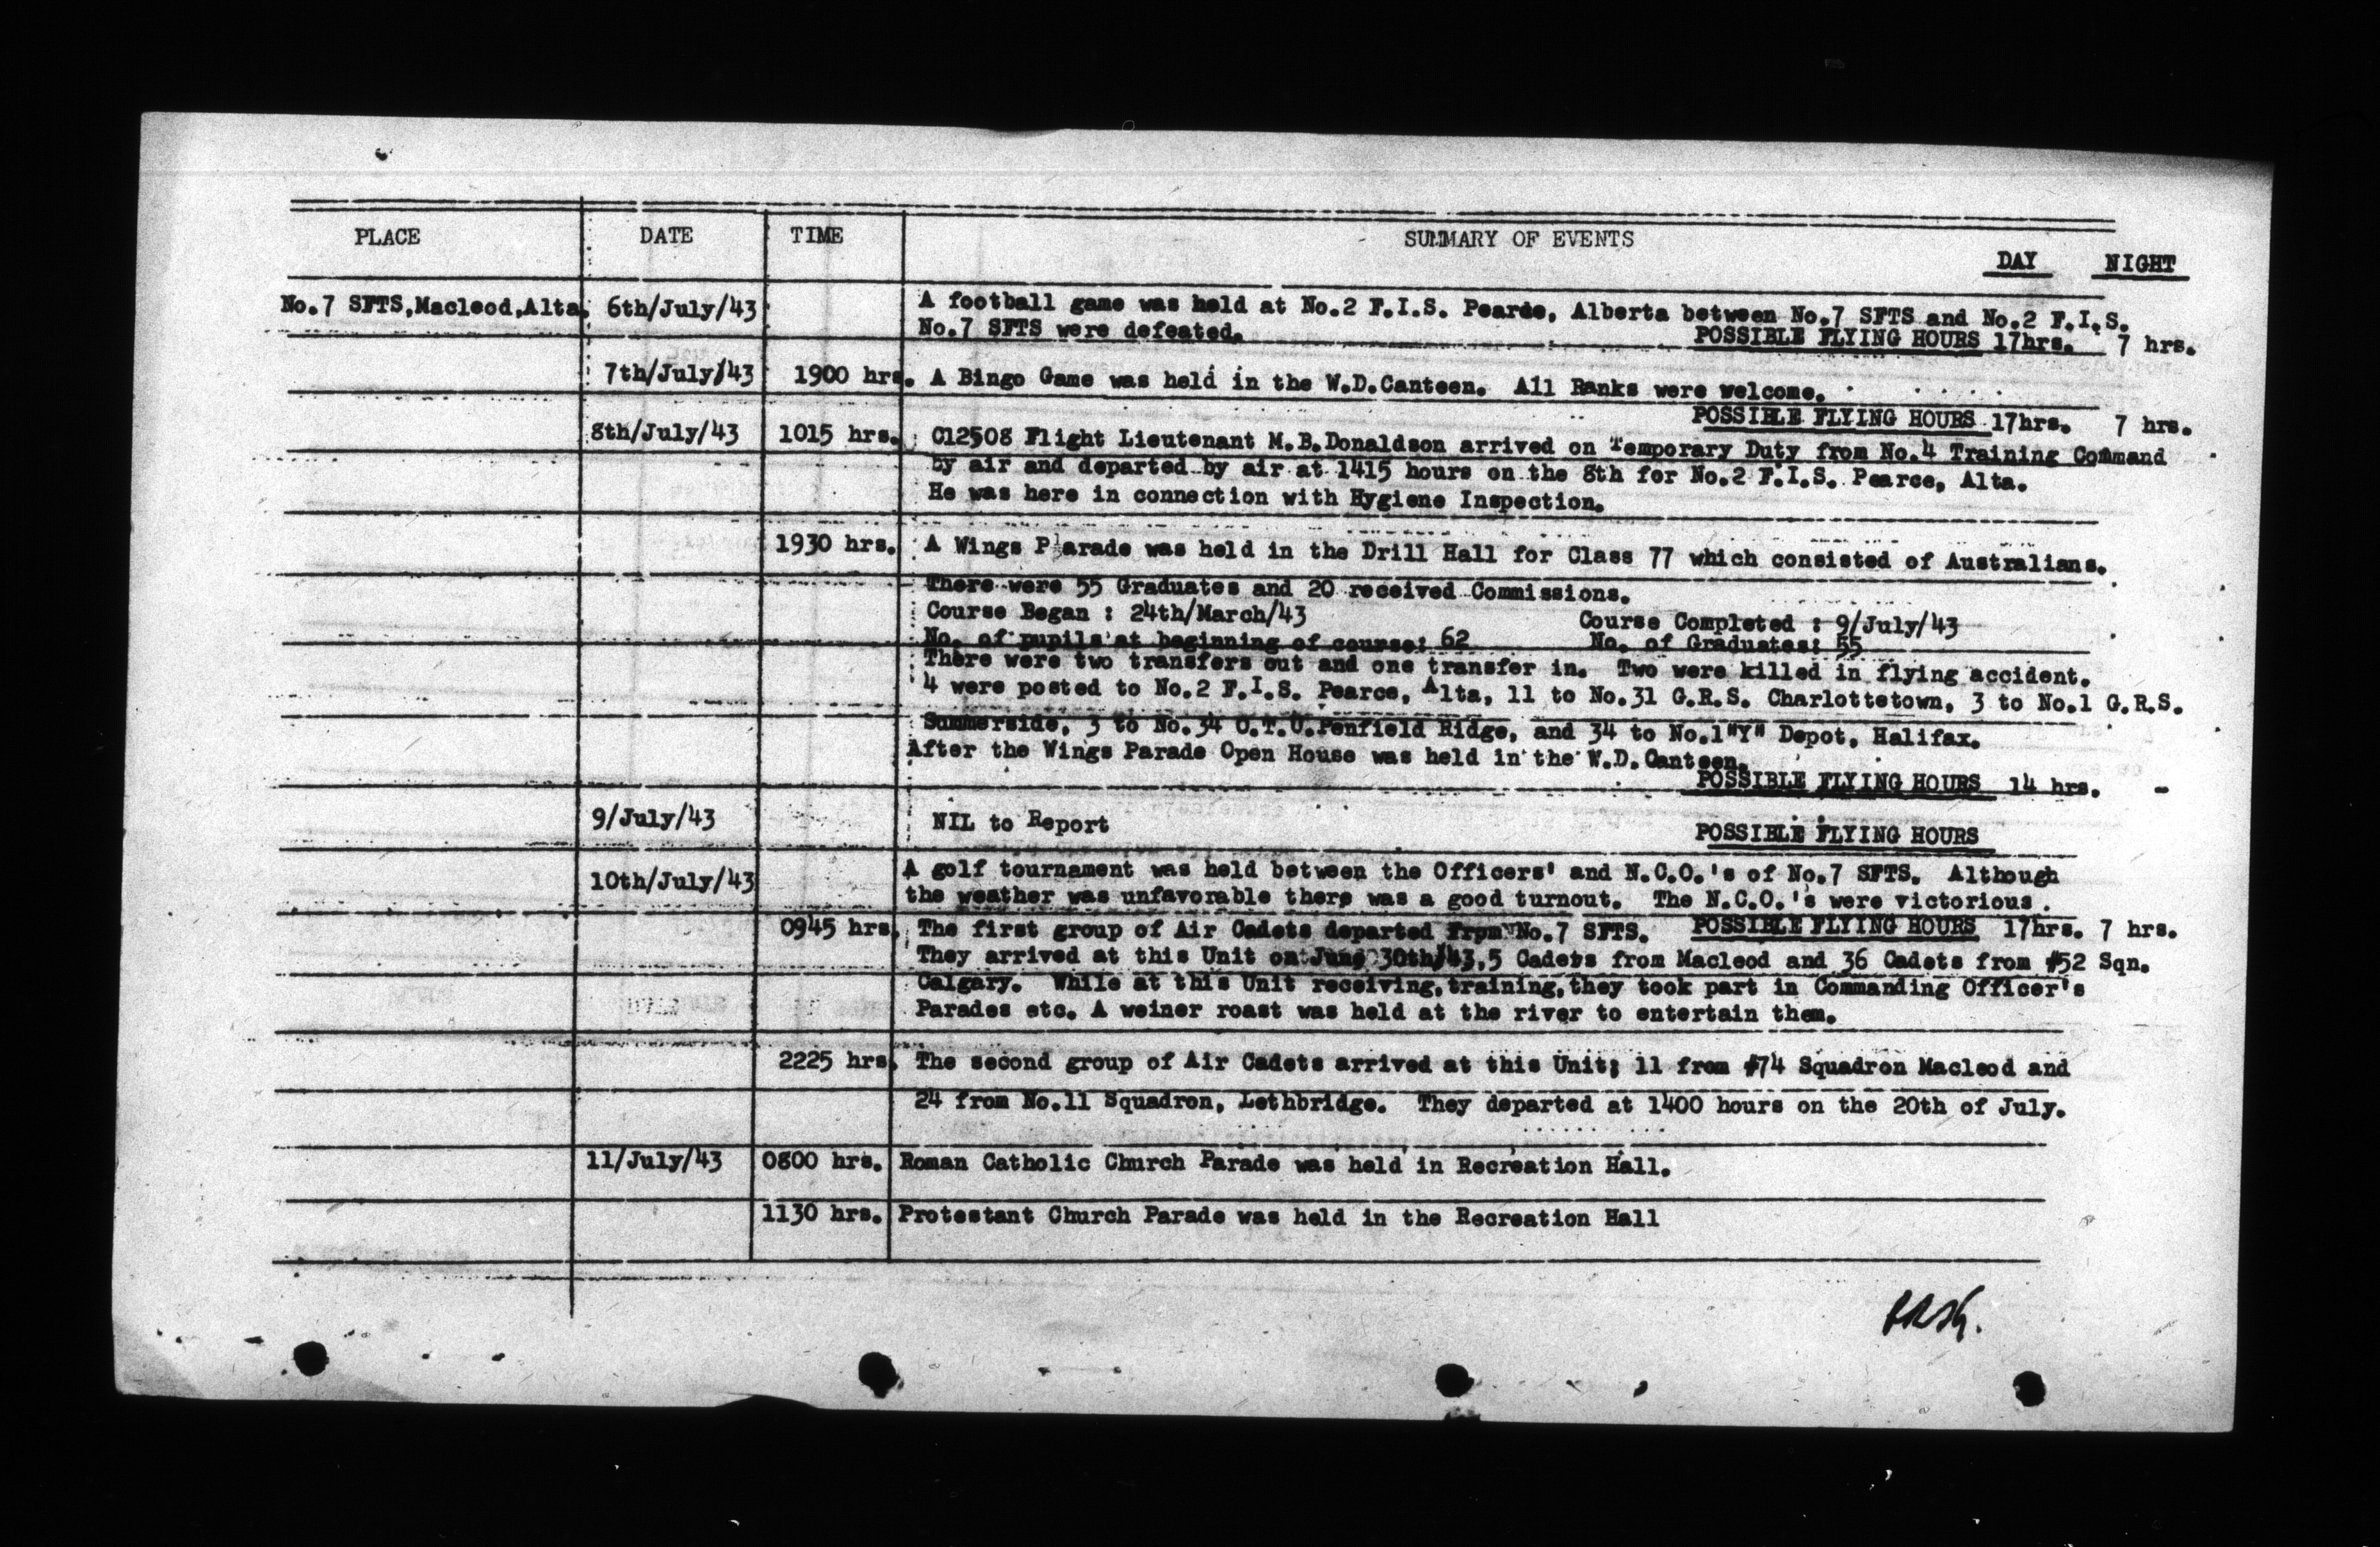 PLACE DATE TIME SUMMARY OF EVENTS
DAY NIGHT
No.7 SFTS,Macleod,Alta. 6th/July/43 A football game was held at No.2 F.I.S. Pearce, Alberta between No.7 SFTS and No.2 F.I.S.
No.7 SFTS were defeated. POSSIBLE FLYING HOURS 17hrs. 7 hrs.
7th/July/43 1900 hrs. A Bingo Game was held in the W.D.Canteen. All Ranks were welcome.
POSSIBLE FLYING HOURS 17hrs. 7 hrs.
8th/July/43 1015 hrs. C12508 Flight Lieutenant M.B.Donaldson arrived on Temporary Duty from No.4 Training Command
by air and departed by air at 1415 hours on the 8th for No.2 F.I.S. Pearce, Alta.
He was here in connection with Hygiene Inspection.
1930 hrs. A Wings Parade was held in the Drill Hall for Class 77 which consisted of Australians.
There were 55 Graduates and 20 received Commissions.
Course Began : 24th/March/43 Course Completed : 9/July/43
No. of pupils at beginning of course: 62 No. of Graduates: 55
There were two transfers out and one transfer in. Two were killed in flying accident.
4 were posted to No.2 F.I.S. Pearce, Alta, 11 to No.31 G.R.S. Charlottetown, 3 to No.1 G.R.S.
Summerside, 3 to No.34 O.T.U.Penfield Ridge, and 34 to No.1"Y" Depot, Halifax.
After the Wings Parade Open House was held in the W.D.Canteen.
POSSIBLE FLYING HOURS 14 hrs. -
9/July/43 NIL to Report POSSIBLE FLYING HOURS
10th/July/43 A golf tournament was held between the Officers' and N.C.O.'s of No.7 SFTS. Although
the weather was unfavorable there was a good turnout. The N.C.O.'s were victorious.
0945 hrs. The first group of Air Cadets departed from No.7 SFTS. POSSIBLE FLYING HOURS 17hrs. 7 hrs.
They arrived at this Unit on June 30th/43,5 Cadets from Macleod and 36 Cadets from #52 Sqn.
Calgary. While at this Unit receiving,training,they took part in Commanding Officer's
Parades etc. A weiner roast was held at the river to entertain them.
2225 hrs. The second group of Air Cadets arrived at this Unit; 11 from #74 Squadron Macleod and
24 from No.11 Squadron, Lethbridge. They departed at 1400 hours on the 20th of July.
11/July/43 0800 hrs. Roman Catholic Church Parade was held in Recreation Hall.
1130 hrs. Protestant Church Parade was held in the Recreation Hall